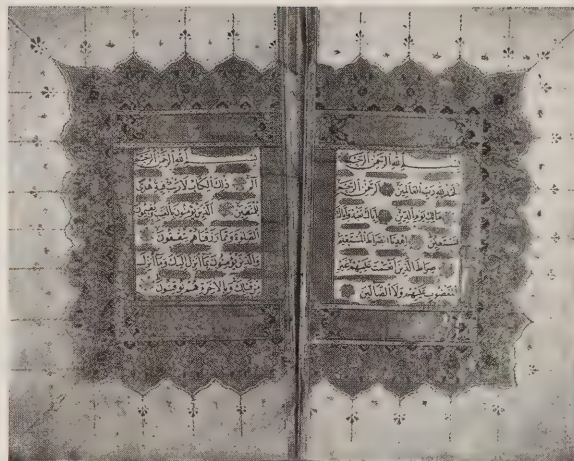 بسم الله الرحمن الرحيم
الحمد لله رب العالمين الرحمن الرحيم
مالك يوم الدين اياك نعبد واياك
نستعين اهدنا الصراط المستقيم
صراط الذين انعمت عليهم غير
المغضوب عليهم ولا الضالين
بسم الله الرحمن الرحيم
الم ذلك الكتاب لا ريب فيه هدى
للمتقين الذين يؤمنون بالغيب ويقيمون
الصلوة ومما رزقناهم ينفقون
والذين يؤمنون بما انزل اليك وما انزل
من قبلك وبالاخرة هم يوقنون